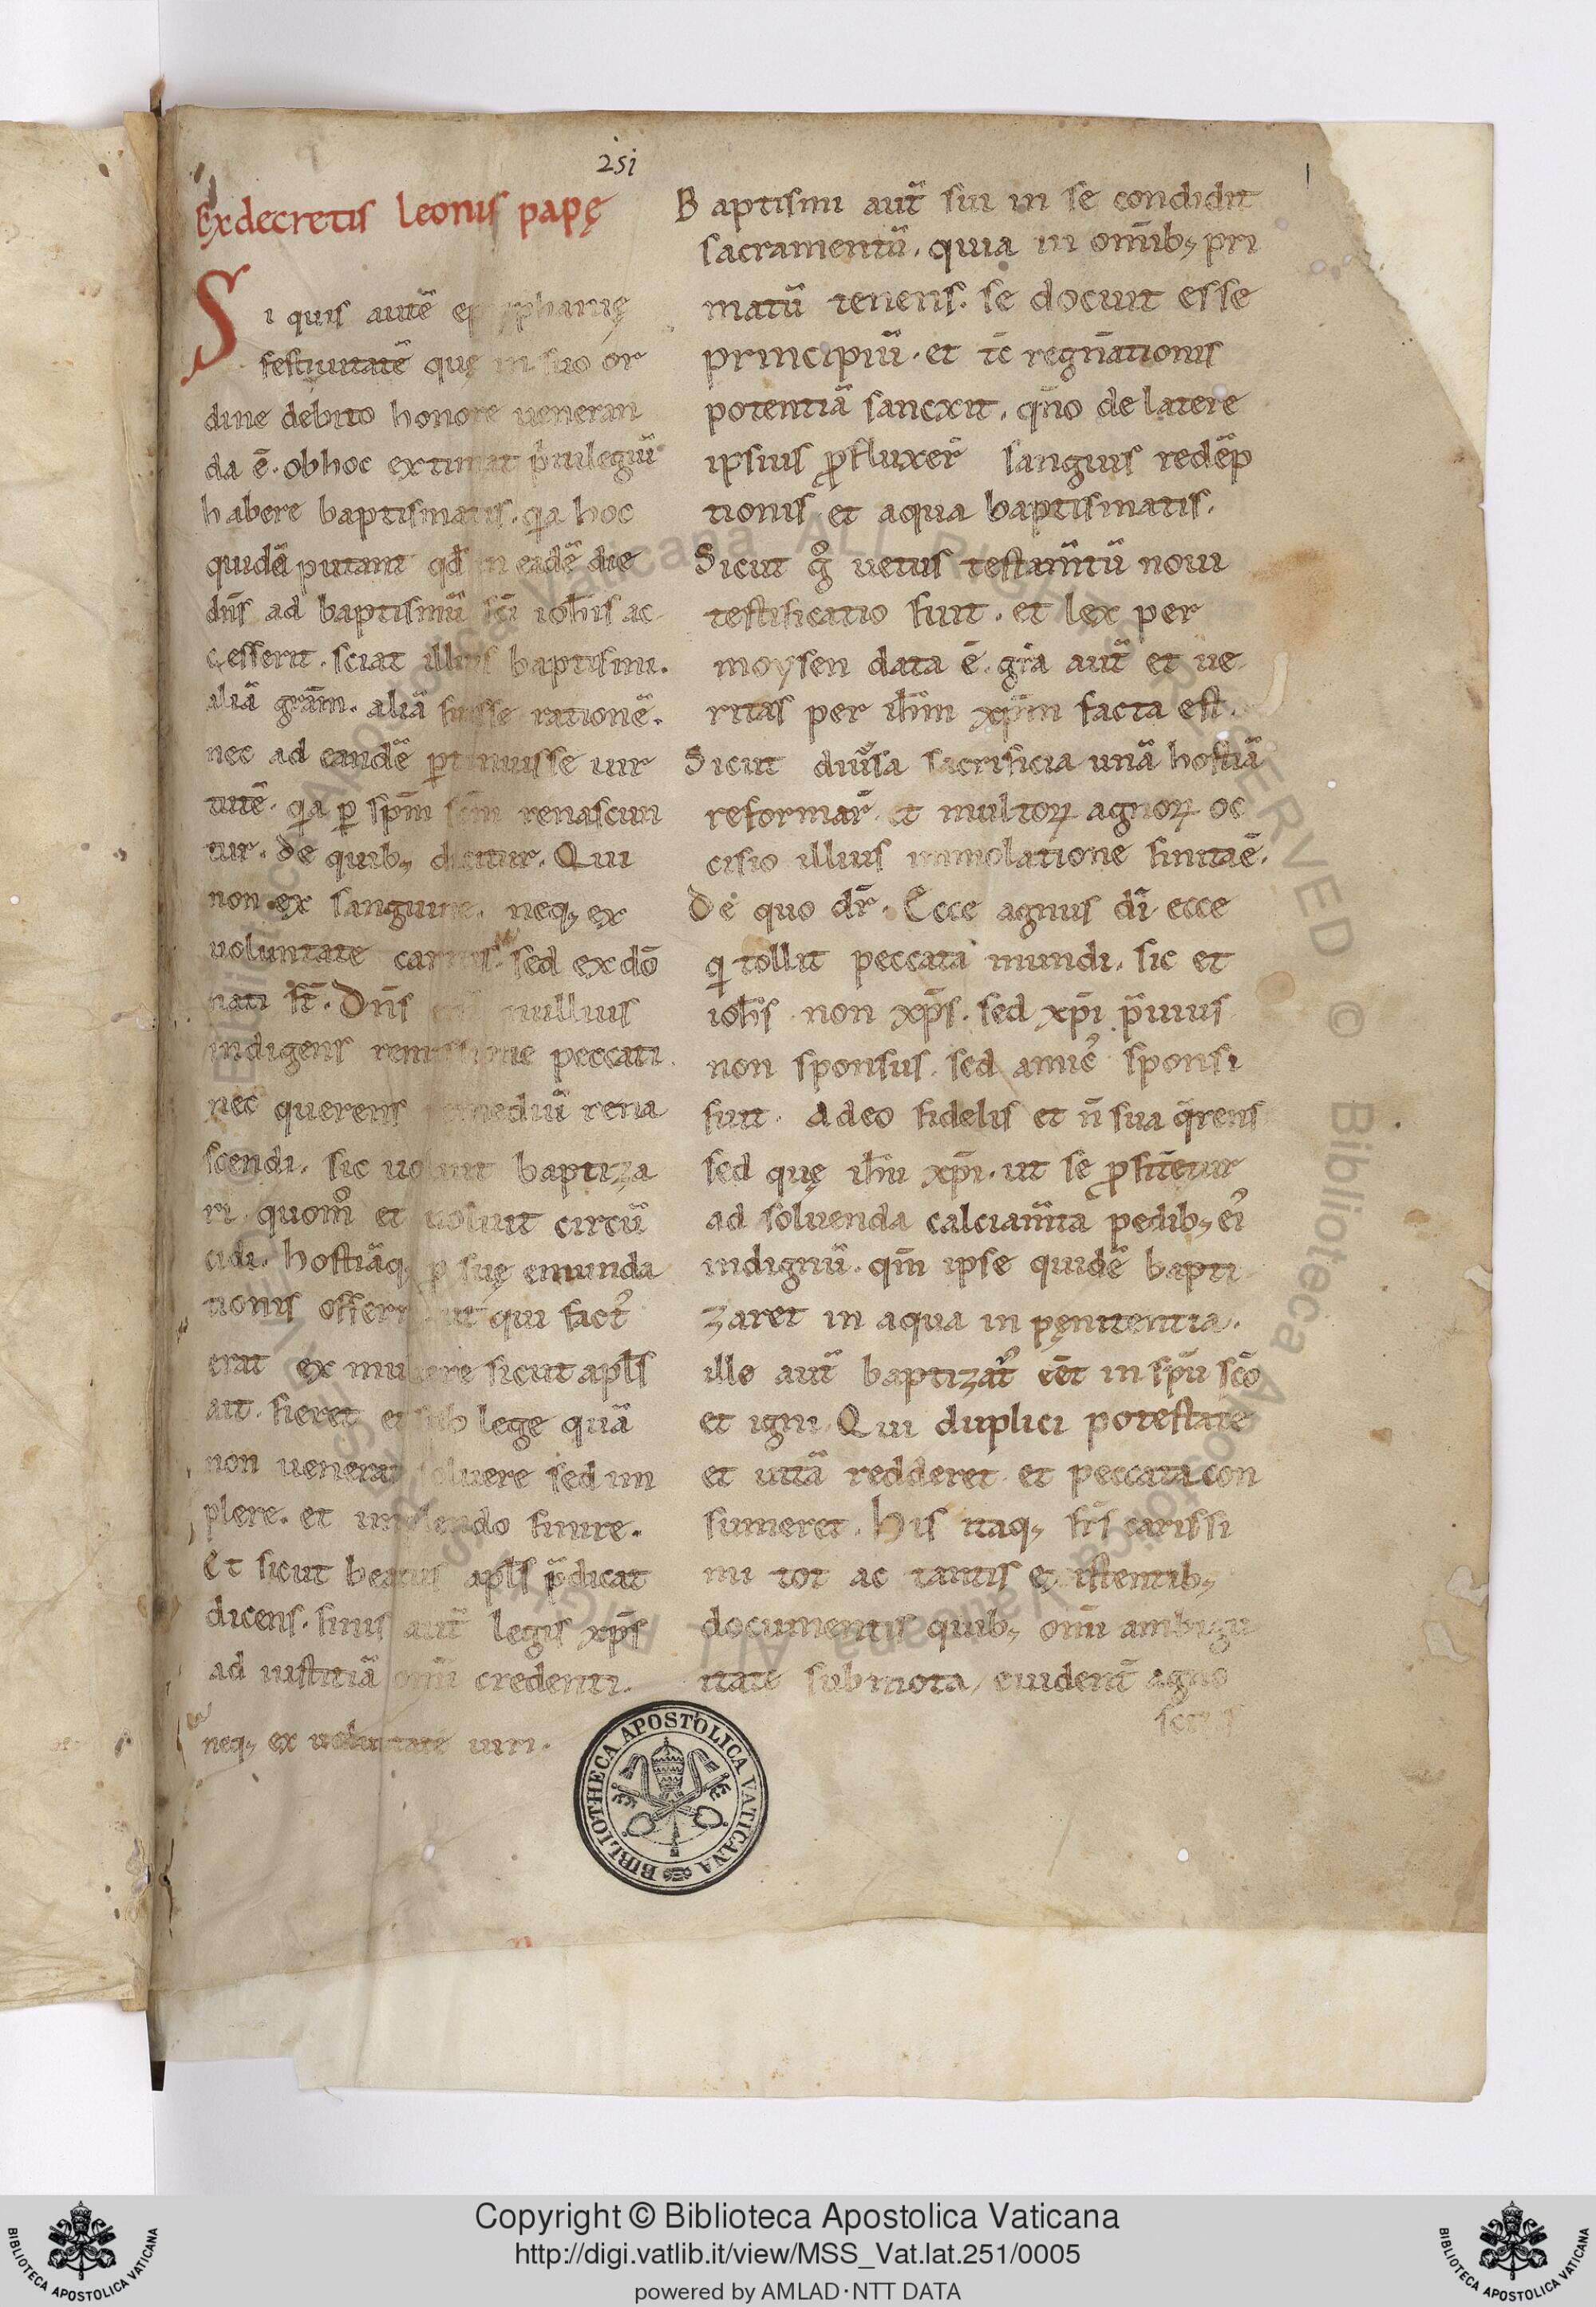 251
1
Ex decretis leonis papę
Si quis autē epyphanię
festiuitatē quę in suo or
dine debito honore ueneran
da ē. ob hoc extimat p̍uilegiū
habere baptismatis. qa hoc
quidā putant qđ in eadē die
dn̄s ad baptismū sc̄i ioh̄is ac
cesserit. sciat illius baptismi.
aliā grām. aliā fuisse rationē.
nec ad eandē ꝑtinuisse uir
tutē. qa ꝑ sp̄m sc̄m renascun
tur. de quib; dicitur. Qui
non ex sanguine. neq; ex
uoluntate carnis. sed ex dō
nati st̄. Dn̄s nullius
indigens remissione peccati.
nec querens remediū rena
scendi. sic uoluit baptiza
ri. quom̊ et uoluit circū
cidi. hostiāq; ꝓ suę emunda
tionis offerri ut qui fact᾽
erat ex muliere sicut apl̄s
ait. fieret et sub lege quā
non uenerat soluere sed im
plere. et implendo finire.
Et sicut beatus apl̄s p̄dicat
dicens. finis aut̄ legis xp̄s
ad iustitiā om̄i credenti.
neq; ex uoluntate uiri.
Baptismi aut̄ sui in se condidit
sacramentū. quia in om̄ib; pri
matū tenens. se docuit esse
principiū. et tc̄ regn̄ationis
potentiā sancxit. qn̄o de latere
ipsius ꝓfluxer̄ sanguis redēp
tionis et aqua baptismatis.
Sicut g̊ uetus testam̄tū noui
testificatio fuit. et lex per
moysen data ē. gr̄a aut̄ et ue
ritas per ih̄m xp̄m facta est.
Sicut diu̓sa sacrificia unā hostiā
reformar̄ et multoꝝ agnoꝝ oc
cisio illius immolatione finitaē.
De quo dr̄. Ecce agnus dī ecce
q tollit peccata mundi. sic et
ioh̄s non xp̄s. sed xp̄i p̄uius
non sponsus. sed amic᾽ sponsi
fuit. Adeo fidelis et n̄ sua q̄rens
sed quę ih̄u xp̄i. ut se ꝓfitetur
ad soluenda calciam̄ta pedib; ei᾽
indignū. qm̄ ipse quidē bapti
zaret in aqua in pęnitentia.
ille aut̄ baptizat᾽ eēt in sp̄u sc̄o
et igni Qui duplici potestate
et uitā redderet et peccata con
sumeret. His itaq; fr̄s carissi
mi tot ac tantis existentib;
documentis quib; om̄i ambigu
itate submota, euident̄ agno
scitis
BIBLIOTHECA APOSTOLICA VATICANA
Copyright © Biblioteca Apostolica Vaticana
http://digi.vatlib.it/view/MSS_Vat.lat.251/0005
powered by AMLAD·NTT DATA
BIBLIOTECA APOSTOLICA VATICANA
BIBLIOTECA APOSTOLICA VATICANA